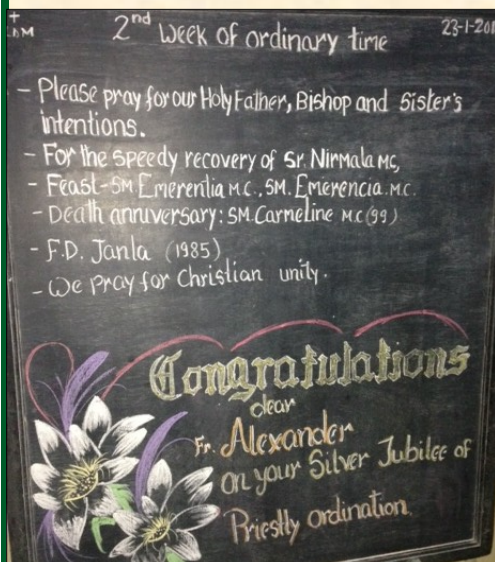 +
LDM
2nd Week of ordinary time
23-1-201
- Please pray for our Holy Father, Bishop and Sister's
intentions.
- For the speedy recovery of Sr. Nirmala MC,
- Feast - SM Emerentia M.C., SM. Emerencia. M.C.
- Death anniversary: SM. Carmeline M.C (99)
- F.D. Janla (1985)
- We pray for Christian unity.
Congratulations
dear
Fr. Alexander
on your Silver Jubilee of
Priestly ordination.